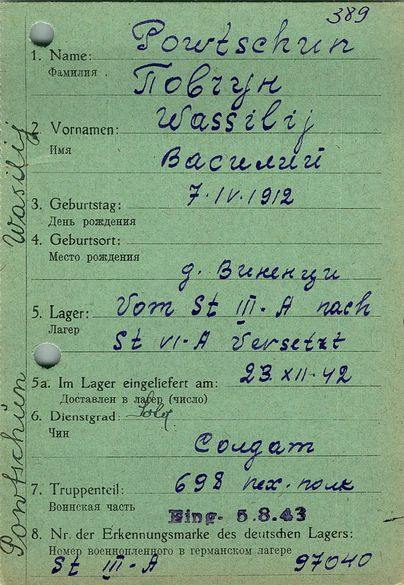 389
1. Name: Powtschun
Фамилия Повчун
2. Vornamen: Wassilij
Имя Василий
3. Geburtstag: 7·IV·1912
День рождения
4. Geburtsort:
Место рождения
д. Виненци
5. Lager: Vom St III-A nach
Лагер St VI-A Versetzt
5a. Im Lager eingeliefert am: 23.XII-42
Доставлен в лагер (число)
6. Dienstgrad: Sold
Чин
Солдат
7. Truppenteil: 698 пех. полк
Воинская часть
Eing- 5.8.43
8. Nr. der Erkennungsmarke des deutschen Lagers:
Номер военнопленного в германском лагере
St III-A 97040
Powtschun Wasilij